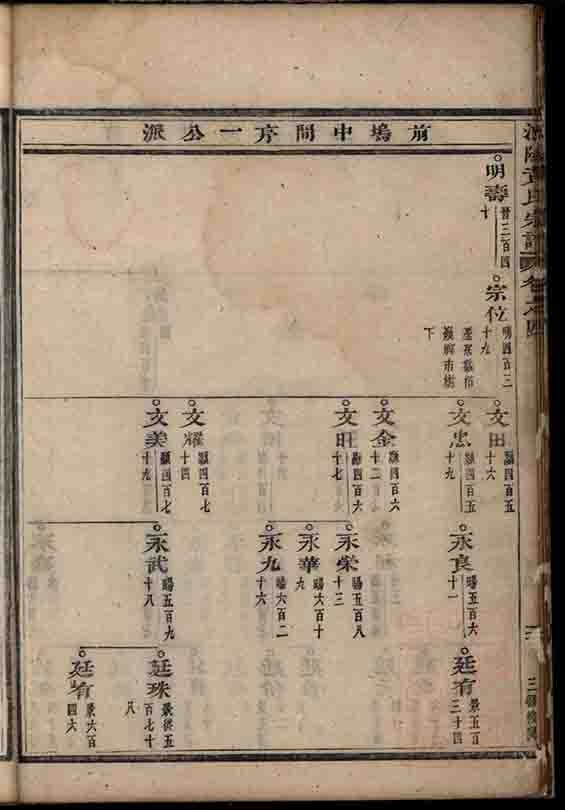 前塢中間房一公派
明壽
晉三百四
十
宗位
明四百三
十九
下
文田
顯四百五
十六
文忠
顯四百五
十九
文金
顯四百六
十二
文旺
顯四百六
十七
文耀
顯四百七
十四
文美
顯四百七
十九
永良
暘五百六
十一
永榮
暘五百八
十三
永華
暘六百十
九
永九
暘六百二
十六
永武
暘五百九
十八
廷宥
景五百
三十四
廷珠
百七十
八
廷宥
景六百
四六